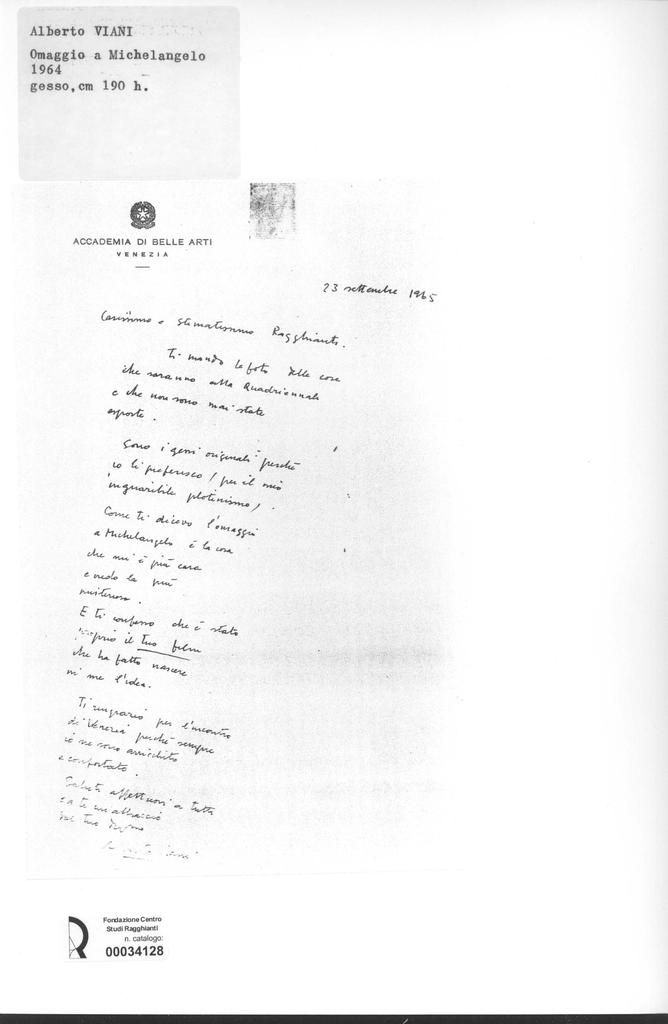 Alberto VIANI
Omaggio a Michelangelo
1964
gesso,cm 190 h.
ACCADEMIA DI BELLE ARTI
VENEZIA
23 settembre 1965
Carissimo e stimatissimo Ragghianti.
Ti mando le foto delle cose
che saranno alla Quadriennale
e che non sono mai state
esposte.
Sono i gessi originali perché
io li preferisco (per il mio
inguaribile plotinismo).
Come ti dicevo l'omaggio
a Michelangelo è la cosa
che mi è più cara
e credo la più
misteriosa.
E ti confesso che è stato
proprio il tuo film
che ha fatto nascere
in me l'idea.
Ti ringrazio per l'incontro
di Venezia perché sempre
io ne sono arricchito
e confortato.
Saluti affettuosi a tutti
e a te un abbraccio
tuo
Fondazione Centro
Studi Ragghianti
n. catalogo:
00034128